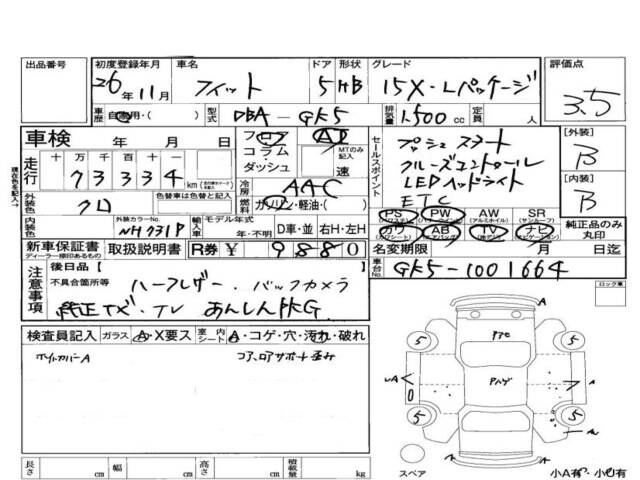 出品番号
初度登録年月
26年11月
車名
フィット
ドア
5
形状
HB
グレード
15X-Lパッケージ
評価点
3.5
車歴
自家用・(　)
型式
DBA-GK5
排気量
1.500 cc
定員
人
現在色を記入→
車検
年　月　日
走行
十 万 千 百 十 一
73334 km
外装色
クロ
色替車は色替前
外装カラーNo.
NH731P
内装色
フロア
コラム・
ダッシュ
AT
MTのみ記入
速
冷房
AAC
燃料
ガソリン・軽油・(　)
輸入車
モデル年式
年・不明
D車・並
右H・左H
セールスポイント
プッシュスタート
クルーズコントロール
LEDヘッドライト
ETC
[外装]
B
[内装]
B
PS
PW
AW
(アルミホイル)
SR
(サンルーフ)
カワ
AB
TV
ナビ
純正品のみ
丸印
新車保証書
ディーラー様印あるもの
取扱説明書
R券
¥9880
名変期限
月　日迄
車台No.
GK5-1001664
注意事項
後日品【　】
不具合箇所等
ハーフレザー・バックカメラ
純正ナビ・TV あんしんPKG
ロック車
検査員記入
ガラス
A・X要ス
室内
シート
A・コゲ・穴・汚れ・破れ
ホイルカバーA
コアロアサポート歪み
長さ cm
幅 cm
高さ cm
積載量 kg
A
アヤセ
アハゲ
A
5
5
5
5
スペア
小A有・小U有